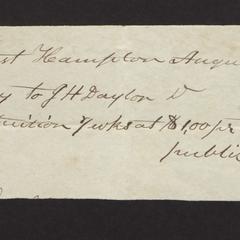 st Hampton Augu
y to J H Dayton D
tuition 7 wks at $1,00 pr
public